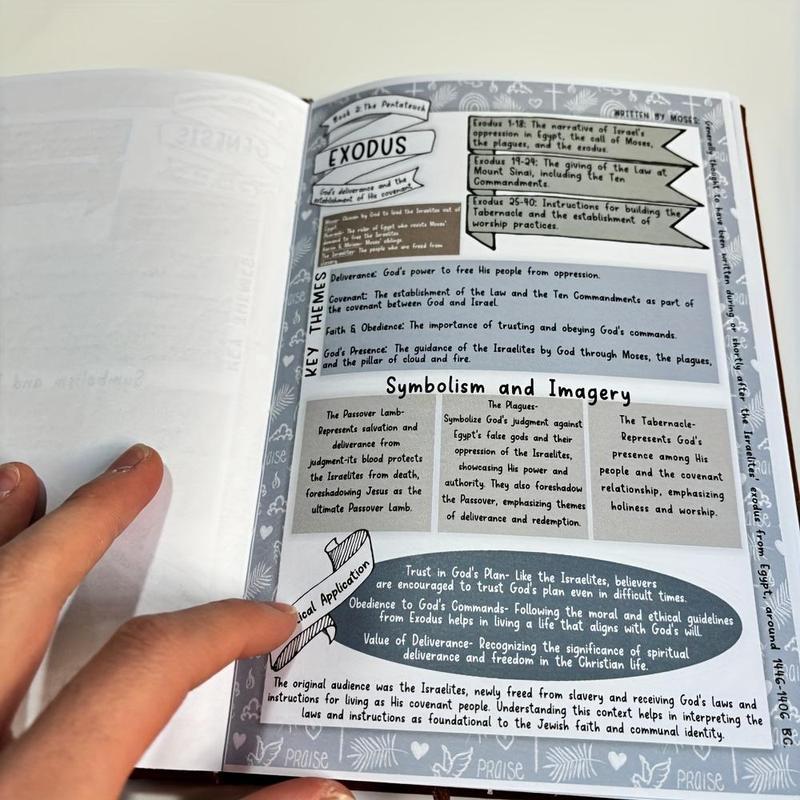 Book 2: The Pentateuch
EXODUS
God's deliverance and the
establishment of His covenant
WRITTEN BY MOSES:
Generally thought to have been written during or shortly after the Israelites' exodus from Egypt, around 1446-1406 BC.
Exodus 1-18: The narrative of Israel's
oppression in Egypt, the call of Moses,
the plagues, and the exodus.
Exodus 19-24: The giving of the Law at
Mount Sinai, including the Ten
Commandments.
Exodus 25-40: Instructions for building the
Tabernacle and the establishment of
worship practices.
Moses: Chosen by God to lead the Israelites out of
Egypt.
Pharaoh: The ruler of Egypt who resists Moses'
demand to free the Israelites.
Aaron & Miriam: Moses' siblings.
The Israelites: The people who are freed from
slavery.
KEY THEMES
Deliverance: God's power to free His people from oppression.
Covenant: The establishment of the Law and the Ten Commandments as part of
the covenant between God and Israel.
Faith & Obedience: The importance of trusting and obeying God's commands.
God's Presence: The guidance of the Israelites by God through Moses, the plagues,
and the pillar of cloud and fire.
Symbolism and Imagery
The Passover Lamb-
Represents salvation and
deliverance from
judgment-its blood protects
the Israelites from death,
foreshadowing Jesus as the
ultimate Passover Lamb.
The Plagues-
Symbolize God's judgment against
Egypt's false gods and their
oppression of the Israelites,
showcasing His power and
authority. They also foreshadow
the Passover, emphasizing themes
of deliverance and redemption.
The Tabernacle-
Represents God's
presence among His
people and the covenant
relationship, emphasizing
holiness and worship.
ical Application
Trust in God's Plan- Like the Israelites, believers
are encouraged to trust God's plan even in difficult times.
Obedience to God's Commands- Following the moral and ethical guidelines
from Exodus helps in living a life that aligns with God's will.
Value of Deliverance- Recognizing the significance of spiritual
deliverance and freedom in the Christian life.
The original audience was the Israelites, newly freed from slavery and receiving God's laws and
instructions for living as His covenant people. Understanding this context helps in interpreting the
laws and instructions as foundational to the Jewish faith and communal identity.
PRAISE
PRAISE
PRAISE